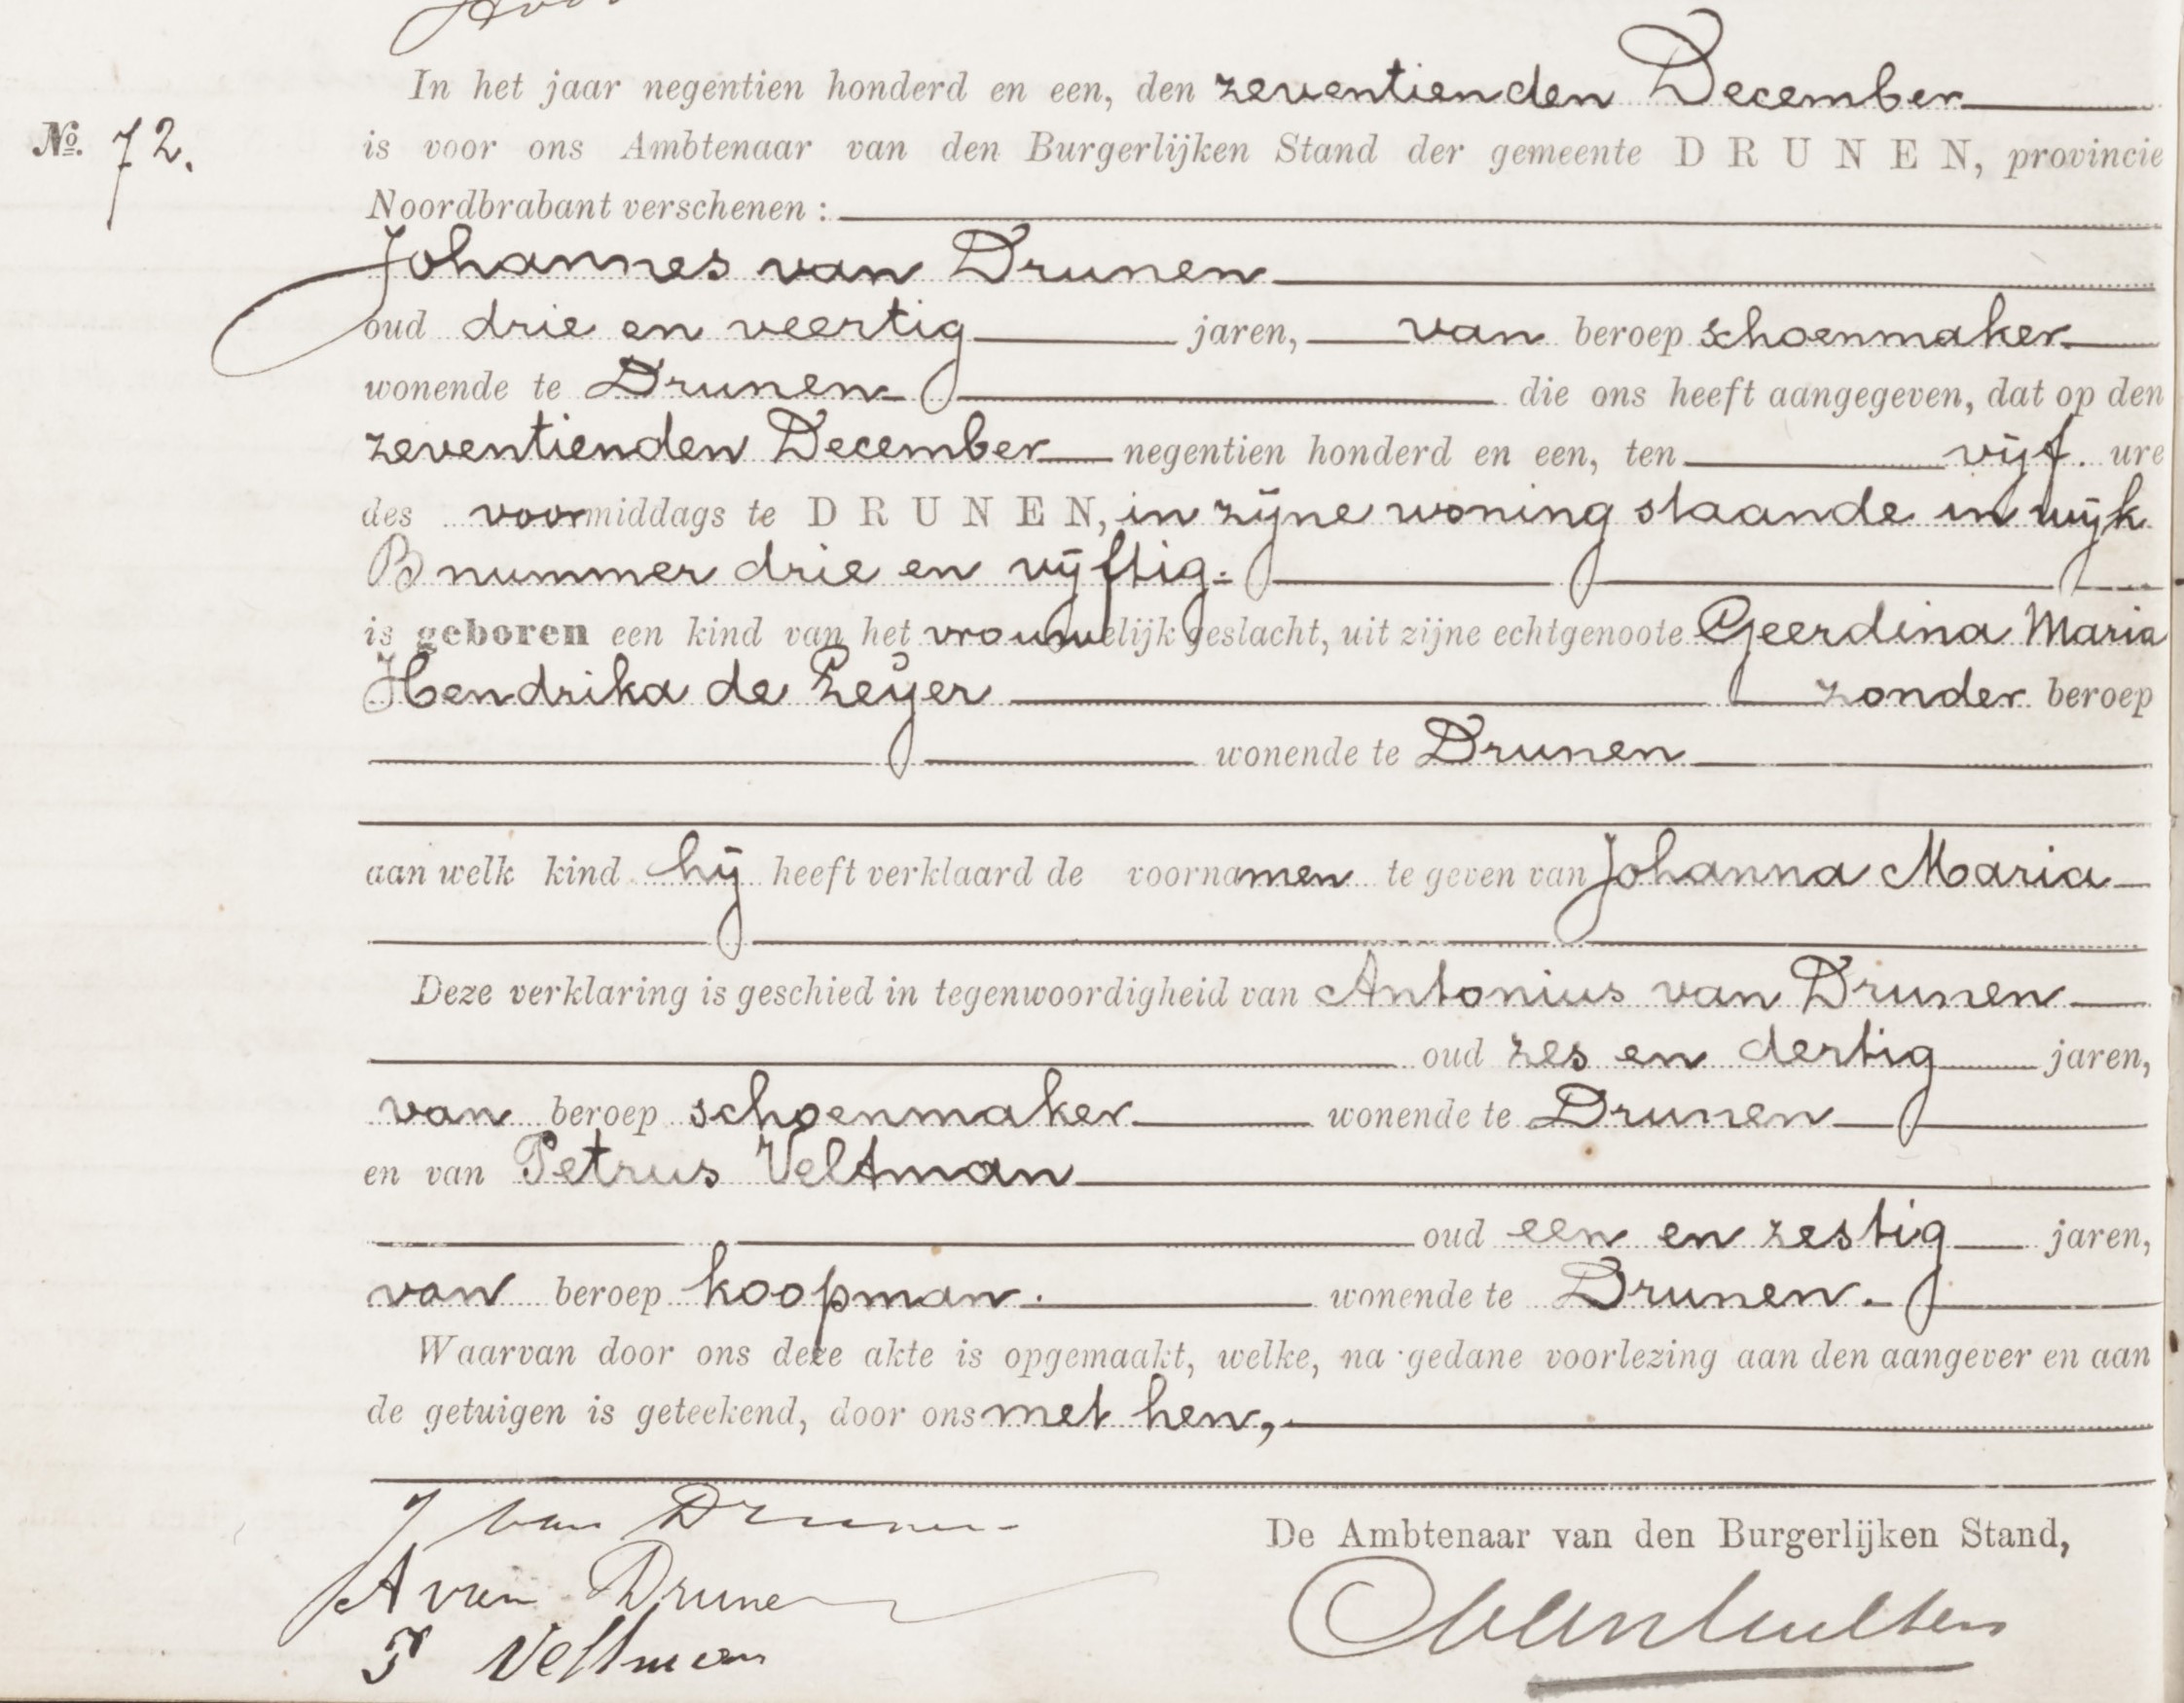 In het jaar negentien honderd en een, den zeventienden December
No. 72.
is voor ons Ambtenaar van den Burgerlijken Stand der gemeente DRUNEN, provincie
Noordbrabant verschenen :
Johannes van Drunen
oud drie en veertig jaren, van beroep schoenmaker
wonende te Drunen die ons heeft aangegeven, dat op den
zeventienden December negentien honderd en een, ten vijf ure
des voormiddags te DRUNEN, in zijne woning staande in wijk
B nummer drie en vijftig.
is geboren een kind van het vrouwelijk geslacht, uit zijne echtgenoote Geerdina Maria
Hendrika de Zeijer zonder beroep
wonende te Drunen
aan welk kind hij heeft verklaard de voornamen te geven van Johanna Maria
Deze verklaring is geschied in tegenwoordigheid van Antonius van Drunen
oud zes en dertig jaren,
van beroep schoenmaker wonende te Drunen
en van Petrus Veltman
oud een en zestig jaren,
van beroep koopman. wonende te Drunen.
Waarvan door ons deze akte is opgemaakt, welke, na gedane voorlezing aan den aangever en aan
de getuigen is geteekend, door ons met hen,
J van Drunen
De Ambtenaar van den Burgerlijken Stand,
A van Drunen
P Veltman